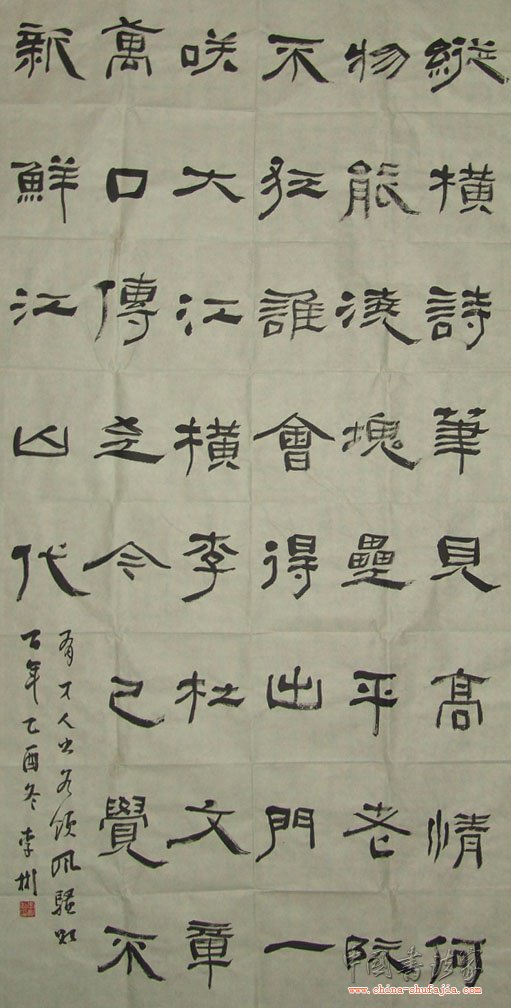 縱橫詩筆見高情何
物能澆塊壘平老阮
不狂誰會得出門一
咲大江橫李杜文章
萬口傳至今已覺不
新鮮江山代
有才人出各領風騷數
百年乙酉冬李彬
中國書法家
www.china-shufajia.com